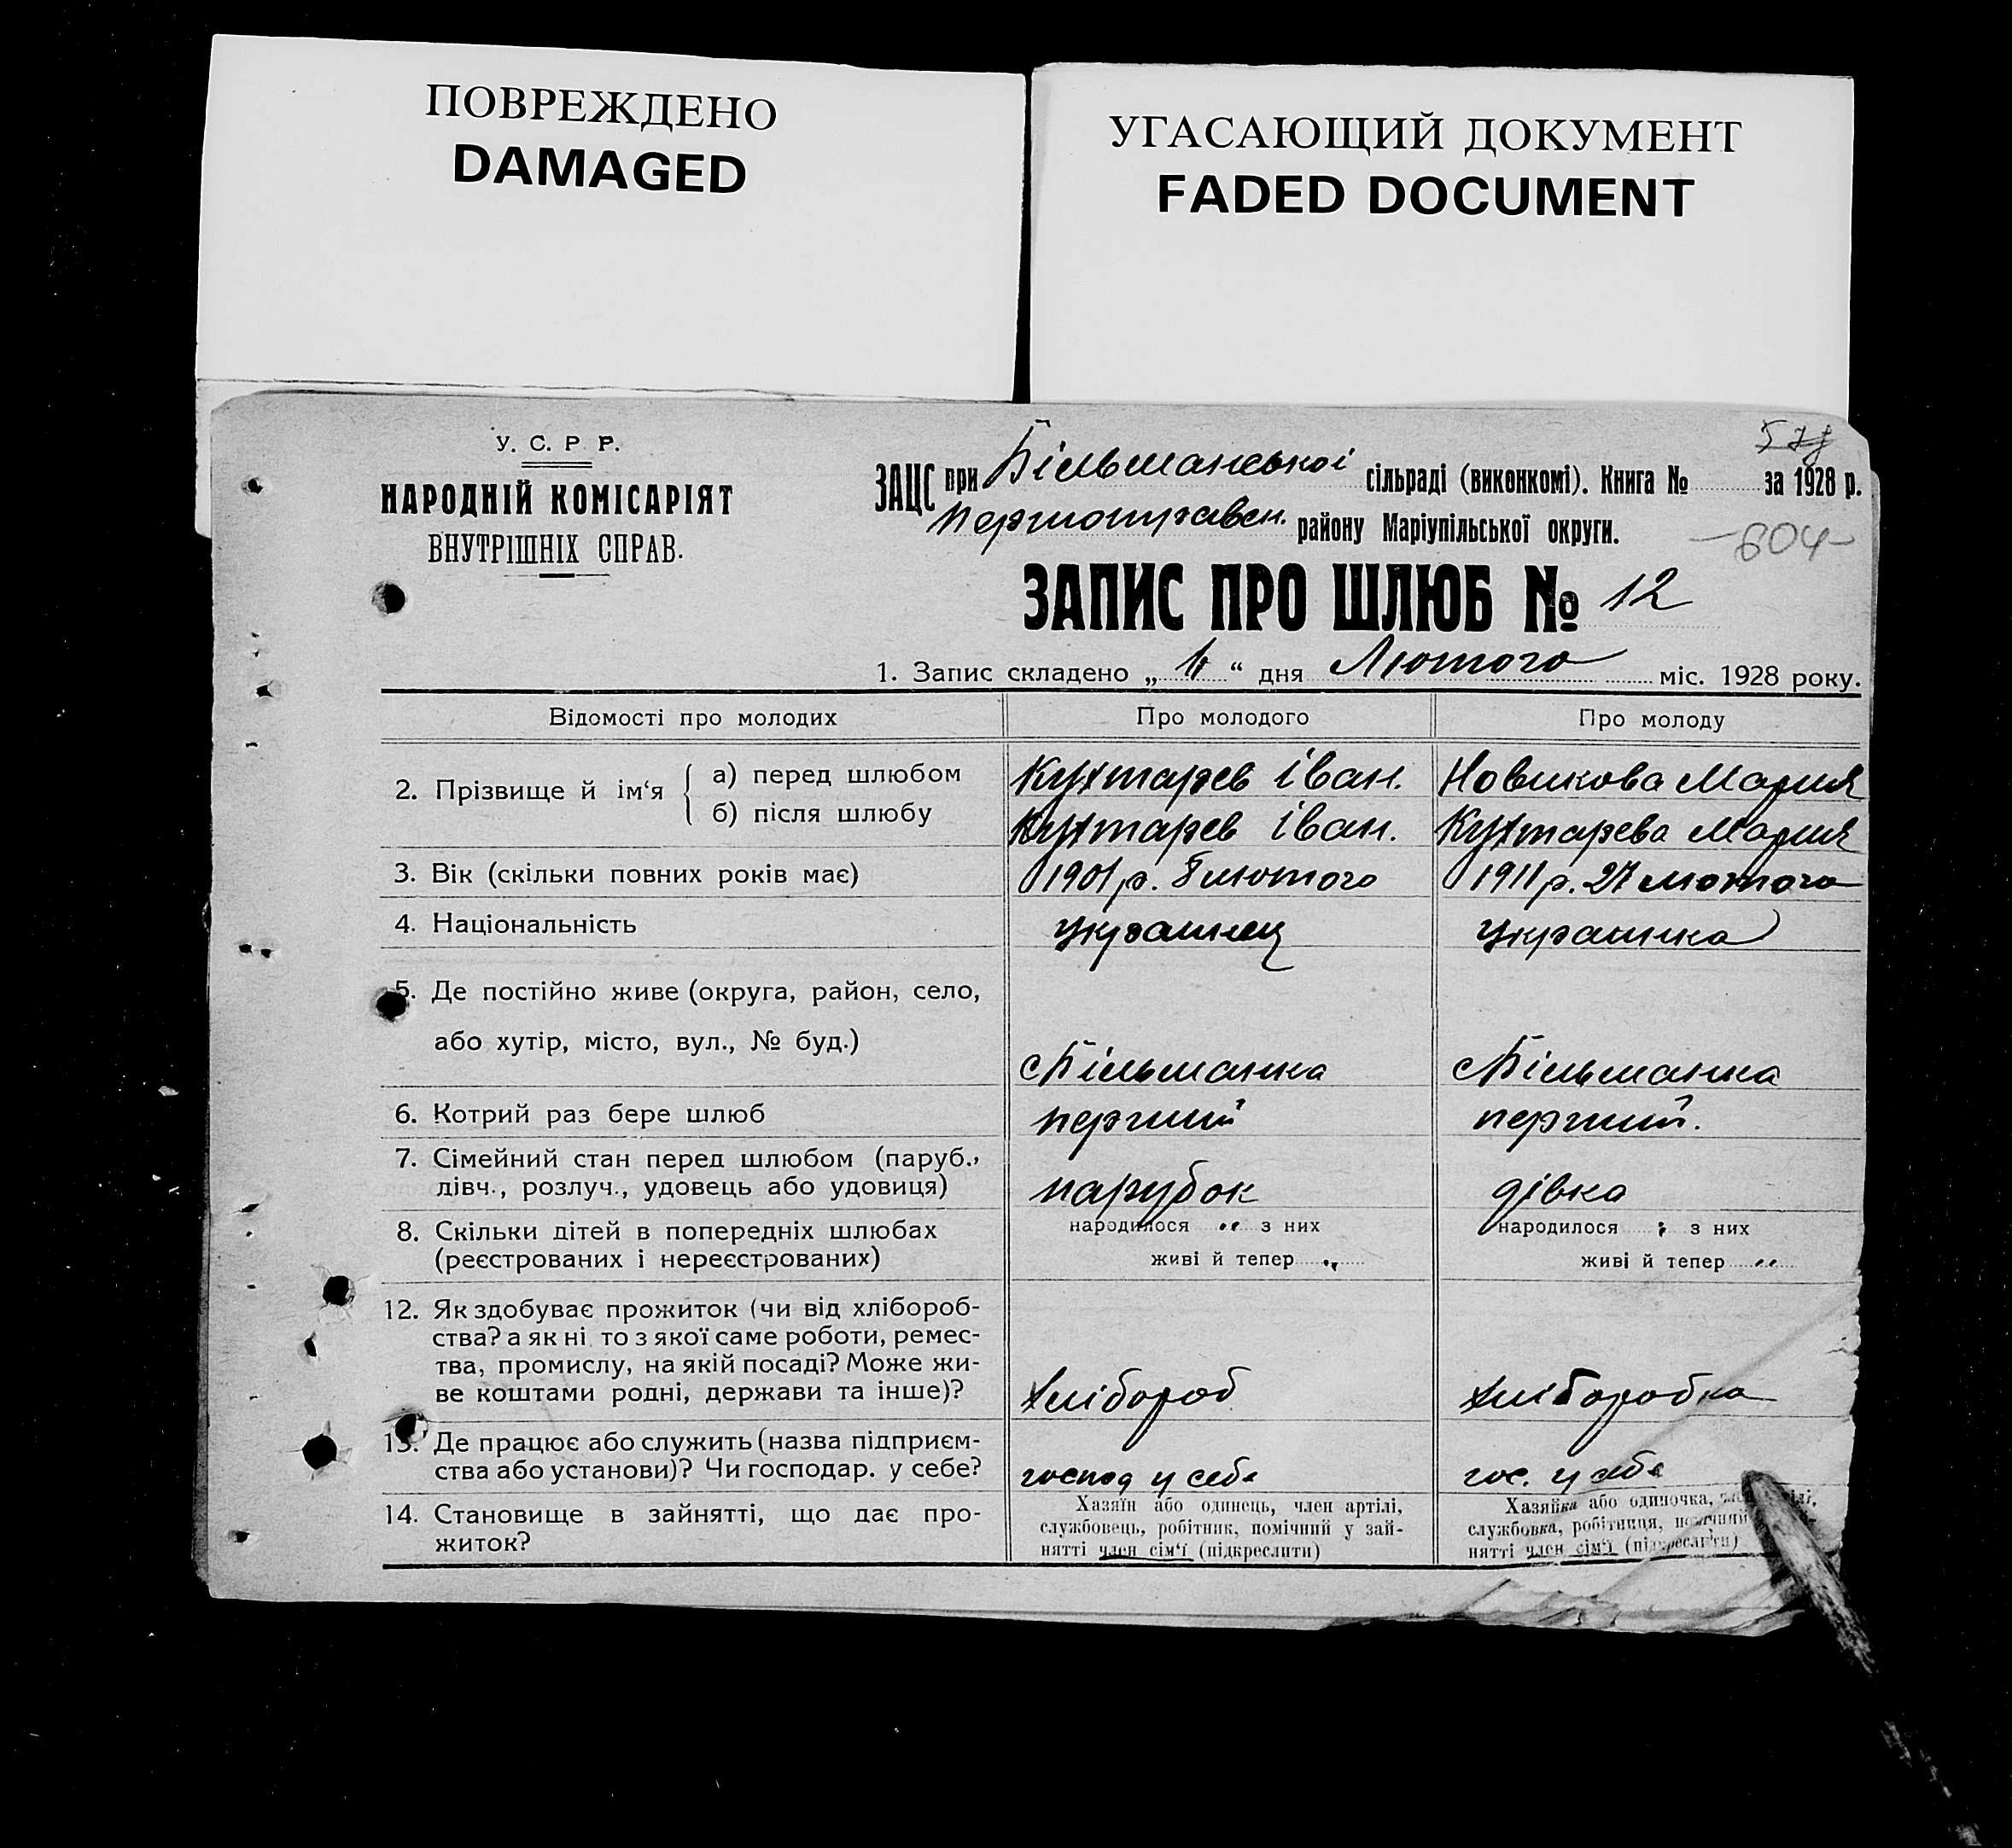 ПОВРЕЖДЕНО
DAMAGED
УГАСАЮЩИЙ ДОКУМЕНТ
FADED DOCUMENT
У. С. Р. Р.
НАРОДНІЙ КОМІСАРІЯТ
ВНУТРІШНІХ СПРАВ.
578
ЗАЦС при Більманської сільраді (виконкомі). Книга № за 1928 р.
Першотравен. району Маріупільської округи.
-604-
ЗАПИС ПРО ШЛЮБ № 12
1. Запис складено „ “ дня Лютого міс. 1928 року.
Відомості про молодих Про молодого Про молоду
2. Прізвище й ім‘я
а) перед шлюбом Кухтарев Іван. Новикова Мария
б) після шлюбу Кухтарев Іван. Кухтарева Мария
3. Вік (скільки повних років має) 1901 р. 8 лютого 1911 р. 27 лютого
4. Національність українец українка
5. Де постійно живе (округа, район, село,
або хутір, місто, вул., № буд.) с Більманка с Більманка
6. Котрий раз бере шлюб перший перший.
7. Сімейний стан перед шлюбом (паруб.,
дівч., розлуч., удовець або удовиця) парубок дівка
8. Скільки дітей в попередніх шлюбах народилося з них народилося з них
(реєстрованих і нереєстрованих) живі й тепер живі й тепер
12. Як здобуває прожиток (чи від хлібороб-
ства? а як ні то з якої саме роботи, ремес-
тва, промислу, на якій посаді? Може жи-
ве коштами родні, держави та інше)? хлібороб хліборобка
13. Де працює або служить (назва підприєм-
ства або установи)? Чи господар. у себе? господ у себе гос. у себе
14. Становище в зайнятті, що дає про-
житок?
Хазяїн або одинець, член артілі,
службовець, робітник, помічний у зай-
нятті член сім‘ї (підкреслити)
Хазяйка або одиночка,
службовка, робітниця,
нятті член сім‘ї (підкреслити)